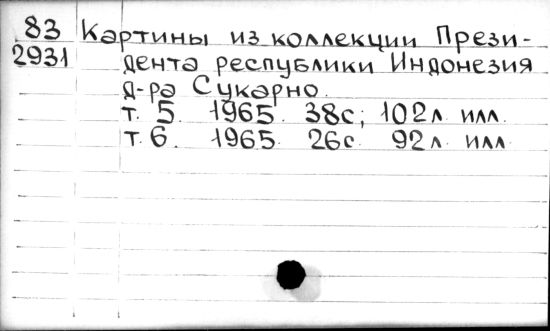 83 Картины из коллекции Прези-
2931 дента республики Индонезия
д-ра Сукарно.
т. 5. 1965. 38с; 102л. илл.
т. 6. 1965. 26с. 92л. илл.